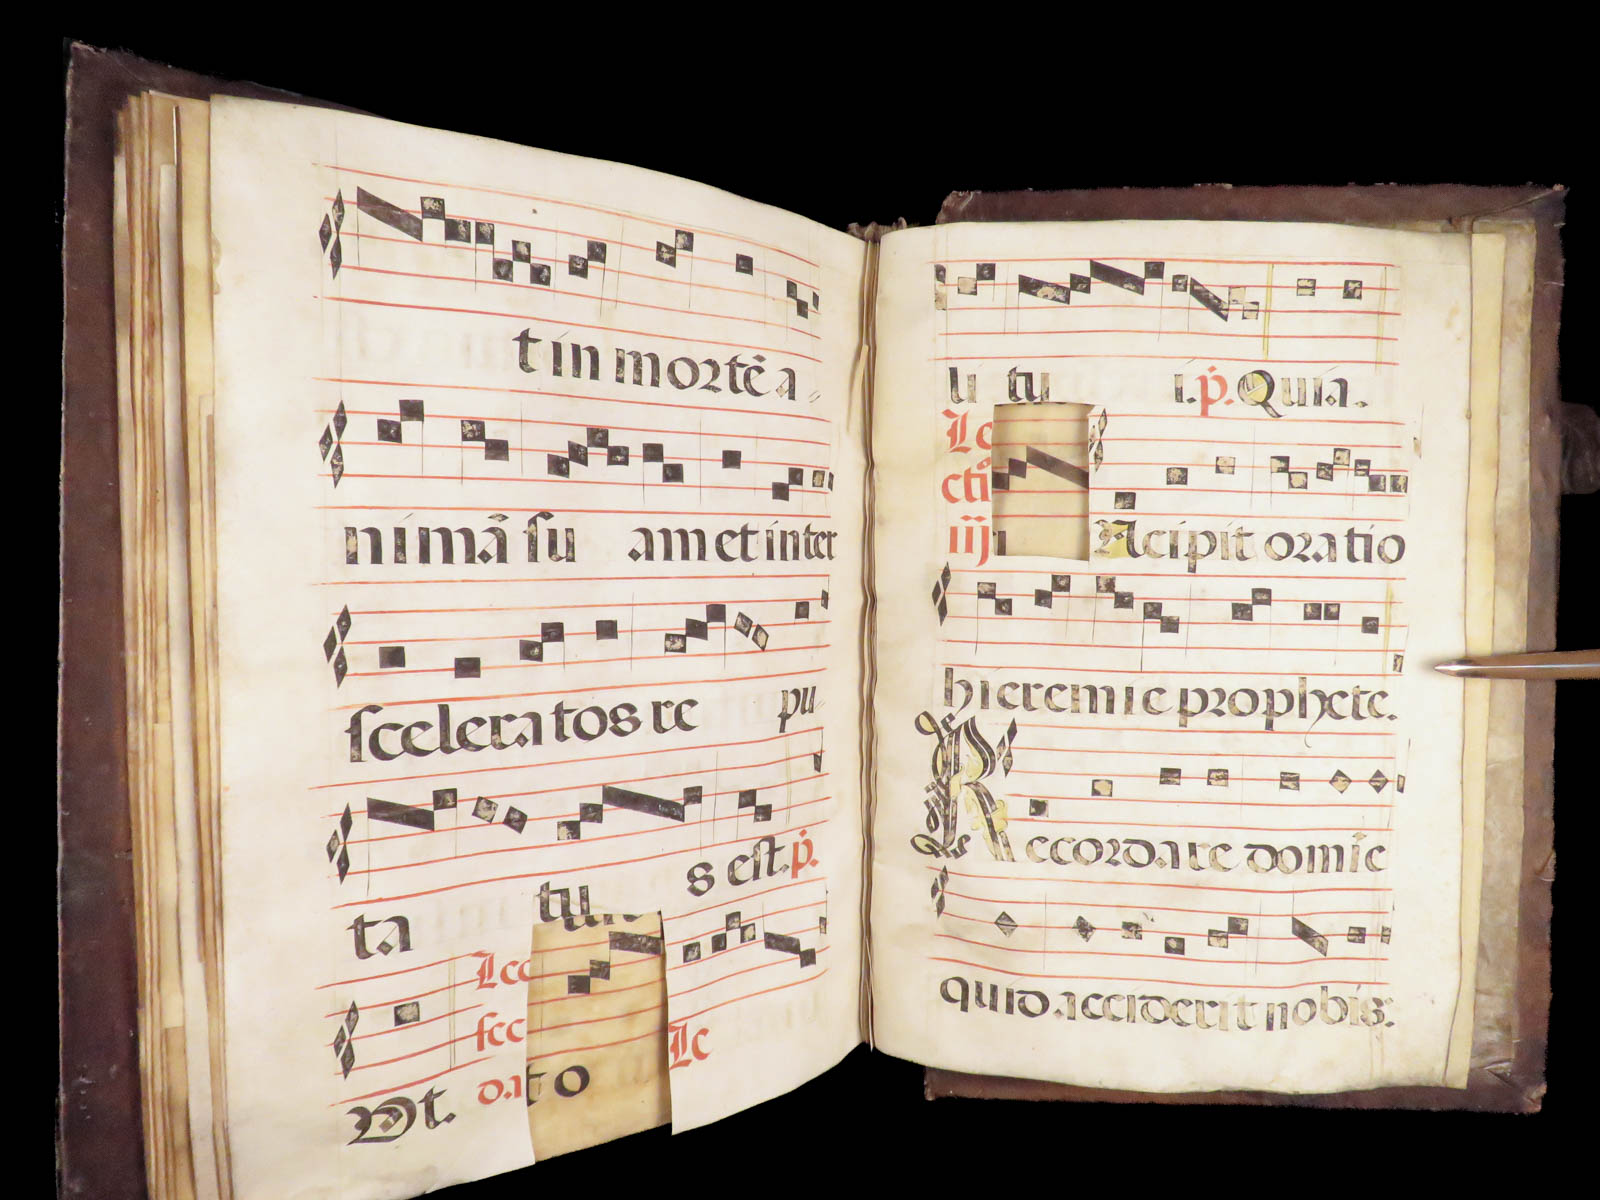 t in mortẽ a-
nimã su am et inter
sceleratos re pu-
ta tu s est. p̃.
Vt.
dato
Le
li tu i. p̃. Quia.
Le
ctĩ
iij
Incipit oratio
hieremie prophete.
Recordare domĩe
quid acciderit nobis: